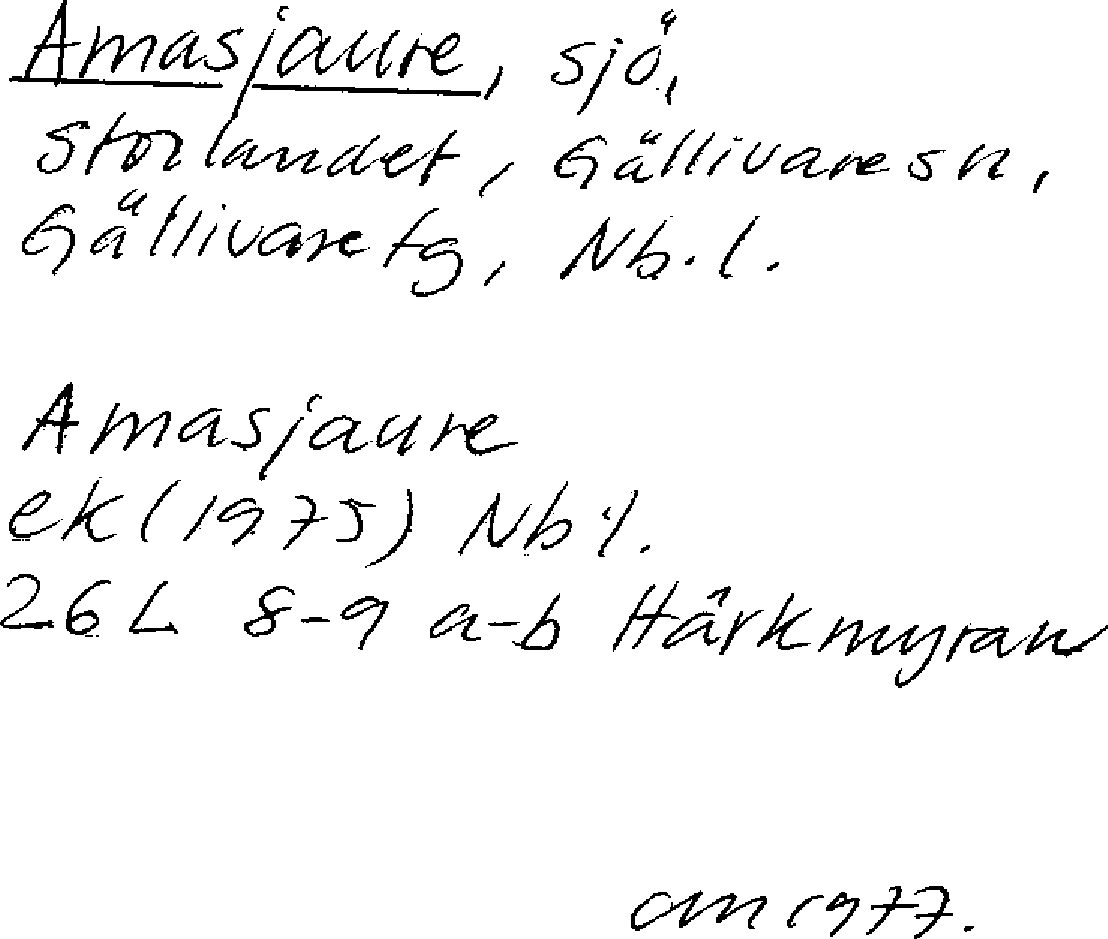 Amasjaure, sjö,
Storlandet, Gällivare sn,
Gällivare tg, Nb. l.
Amasjaure
ek (1975) Nb:l.
26 L 8-9 a-b Hårkmyran
1977.